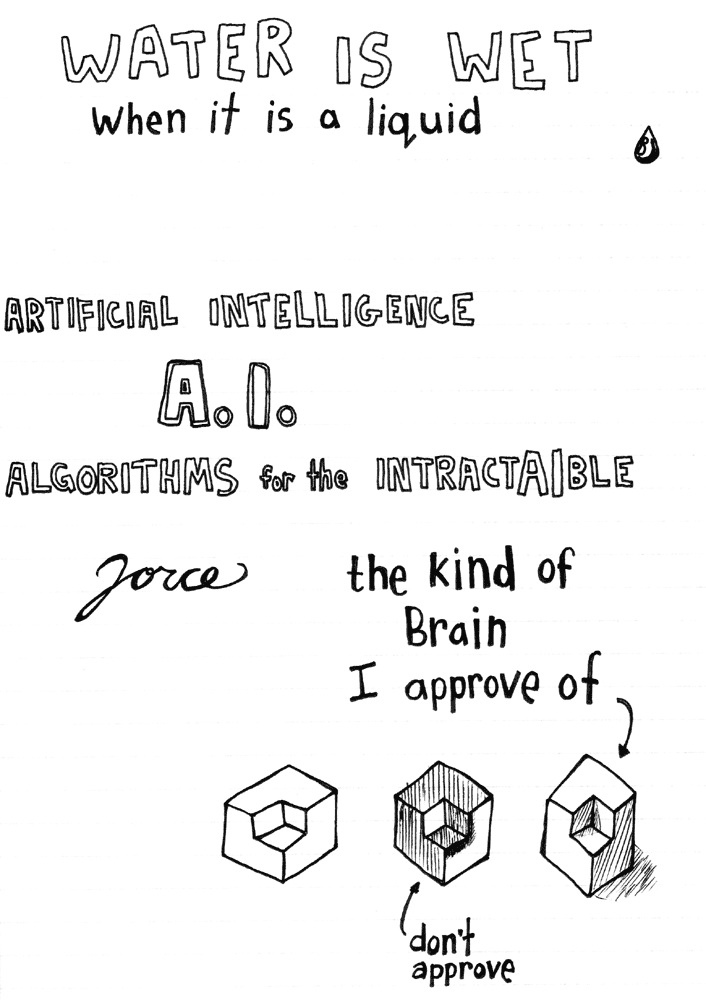 WATER IS WET
when it is a liquid
ARTIFICIAL INTELLIGENCE
A.I.
ALGORITHMS for the INTRACTAIBLE
Jorce
the kind of
Brain
I approve of
don't
approve